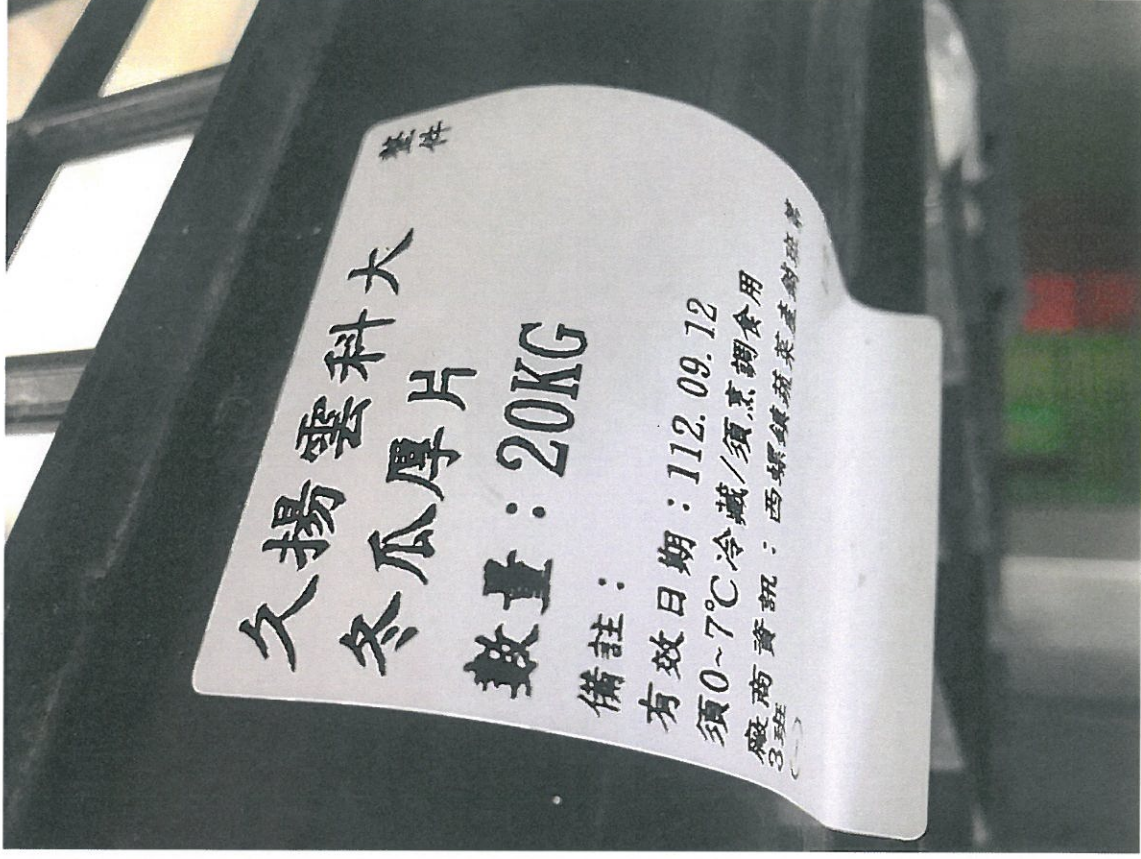 久揚雲科大
整件
冬瓜厚片
數量:20KG
備註:
有效日期:112.09.12
須0~7℃冷藏/須烹調食用
廠商資訊:西螺鎮蔬菜產銷班第
3班